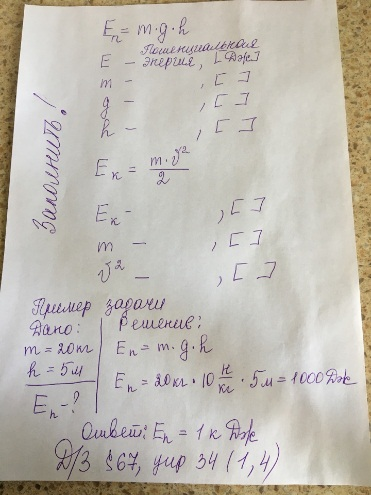 Заполнить!
Eп = m·g·h
E – Потенциальная энергия, [Дж]
m – , [ ]
g – , [ ]
h – , [ ]
Eк = m·υ²/2
Eк – , [ ]
m – , [ ]
υ² – , [ ]
Пример задачи
Дано:
m = 20кг
h = 5м
Eп – ?
Решение:
Eп = m·g·h
Eп = 20кг · 10 Н/кг · 5м = 1000 Дж
Ответ: Eп = 1 к Дж
Д/З §67, упр 34 (1,4)